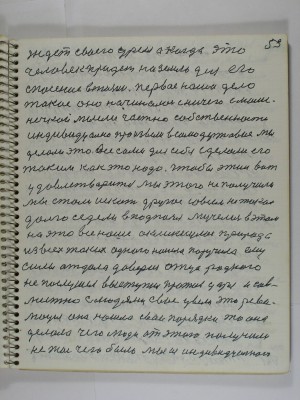 53
ждет своего время а когда это
человек придет на землю для его
спасения в жизни. Первое наши дело
такое оно начиналось с ничего с мале-
нечкой мысли частно собственности
индивидуально произвели в самодержавие мы
делали это все сами для себя сделали его
таким как это надо. Чтобы этим вот
удовлетвориться мы этого не получили
мы стали искать другое совсем не такое
долго сидели в подпольи мучились в этом
на это все наше скликнулась природа
из всех таких одного нашла поручила ему
силы отдала доверия отца родного
не послушал выступил против царя и сов-
местно с людями свое увели это рево-
люция она нашла свои порядки то она
делала чего люди от этого получили
не то чего было мысли индивидуального